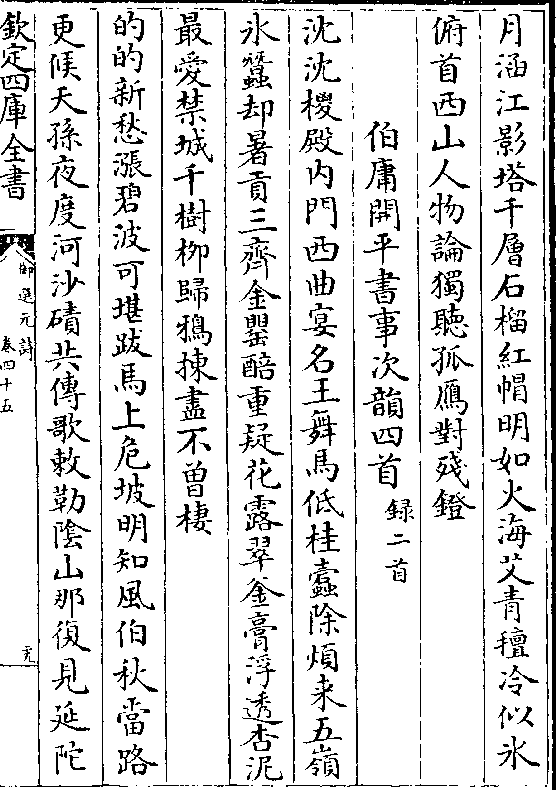 月涵江影塔千層石榴紅帽明如火海艾青𥰭冷似氷
俯首西山人物論獨聽孤鴈對殘鐙
伯庸開平書事次韻四首 録二首
沈沈㮨殿内門西曲宴名王舞馬低桂蠧除煩来五嶺
氷蠶却暑貢三齊金罌醅重凝花露翠釜膏浮透杏泥
最愛禁城千樹栁歸鴉揀盡不曾棲
的的新愁漲碧波可堪跋馬上危坡明知風伯秋當路
更候天孫夜度河沙磧共傳歌敕勒陰山那復見延陀
欽定四庫全書
御選元詩
卷四十五